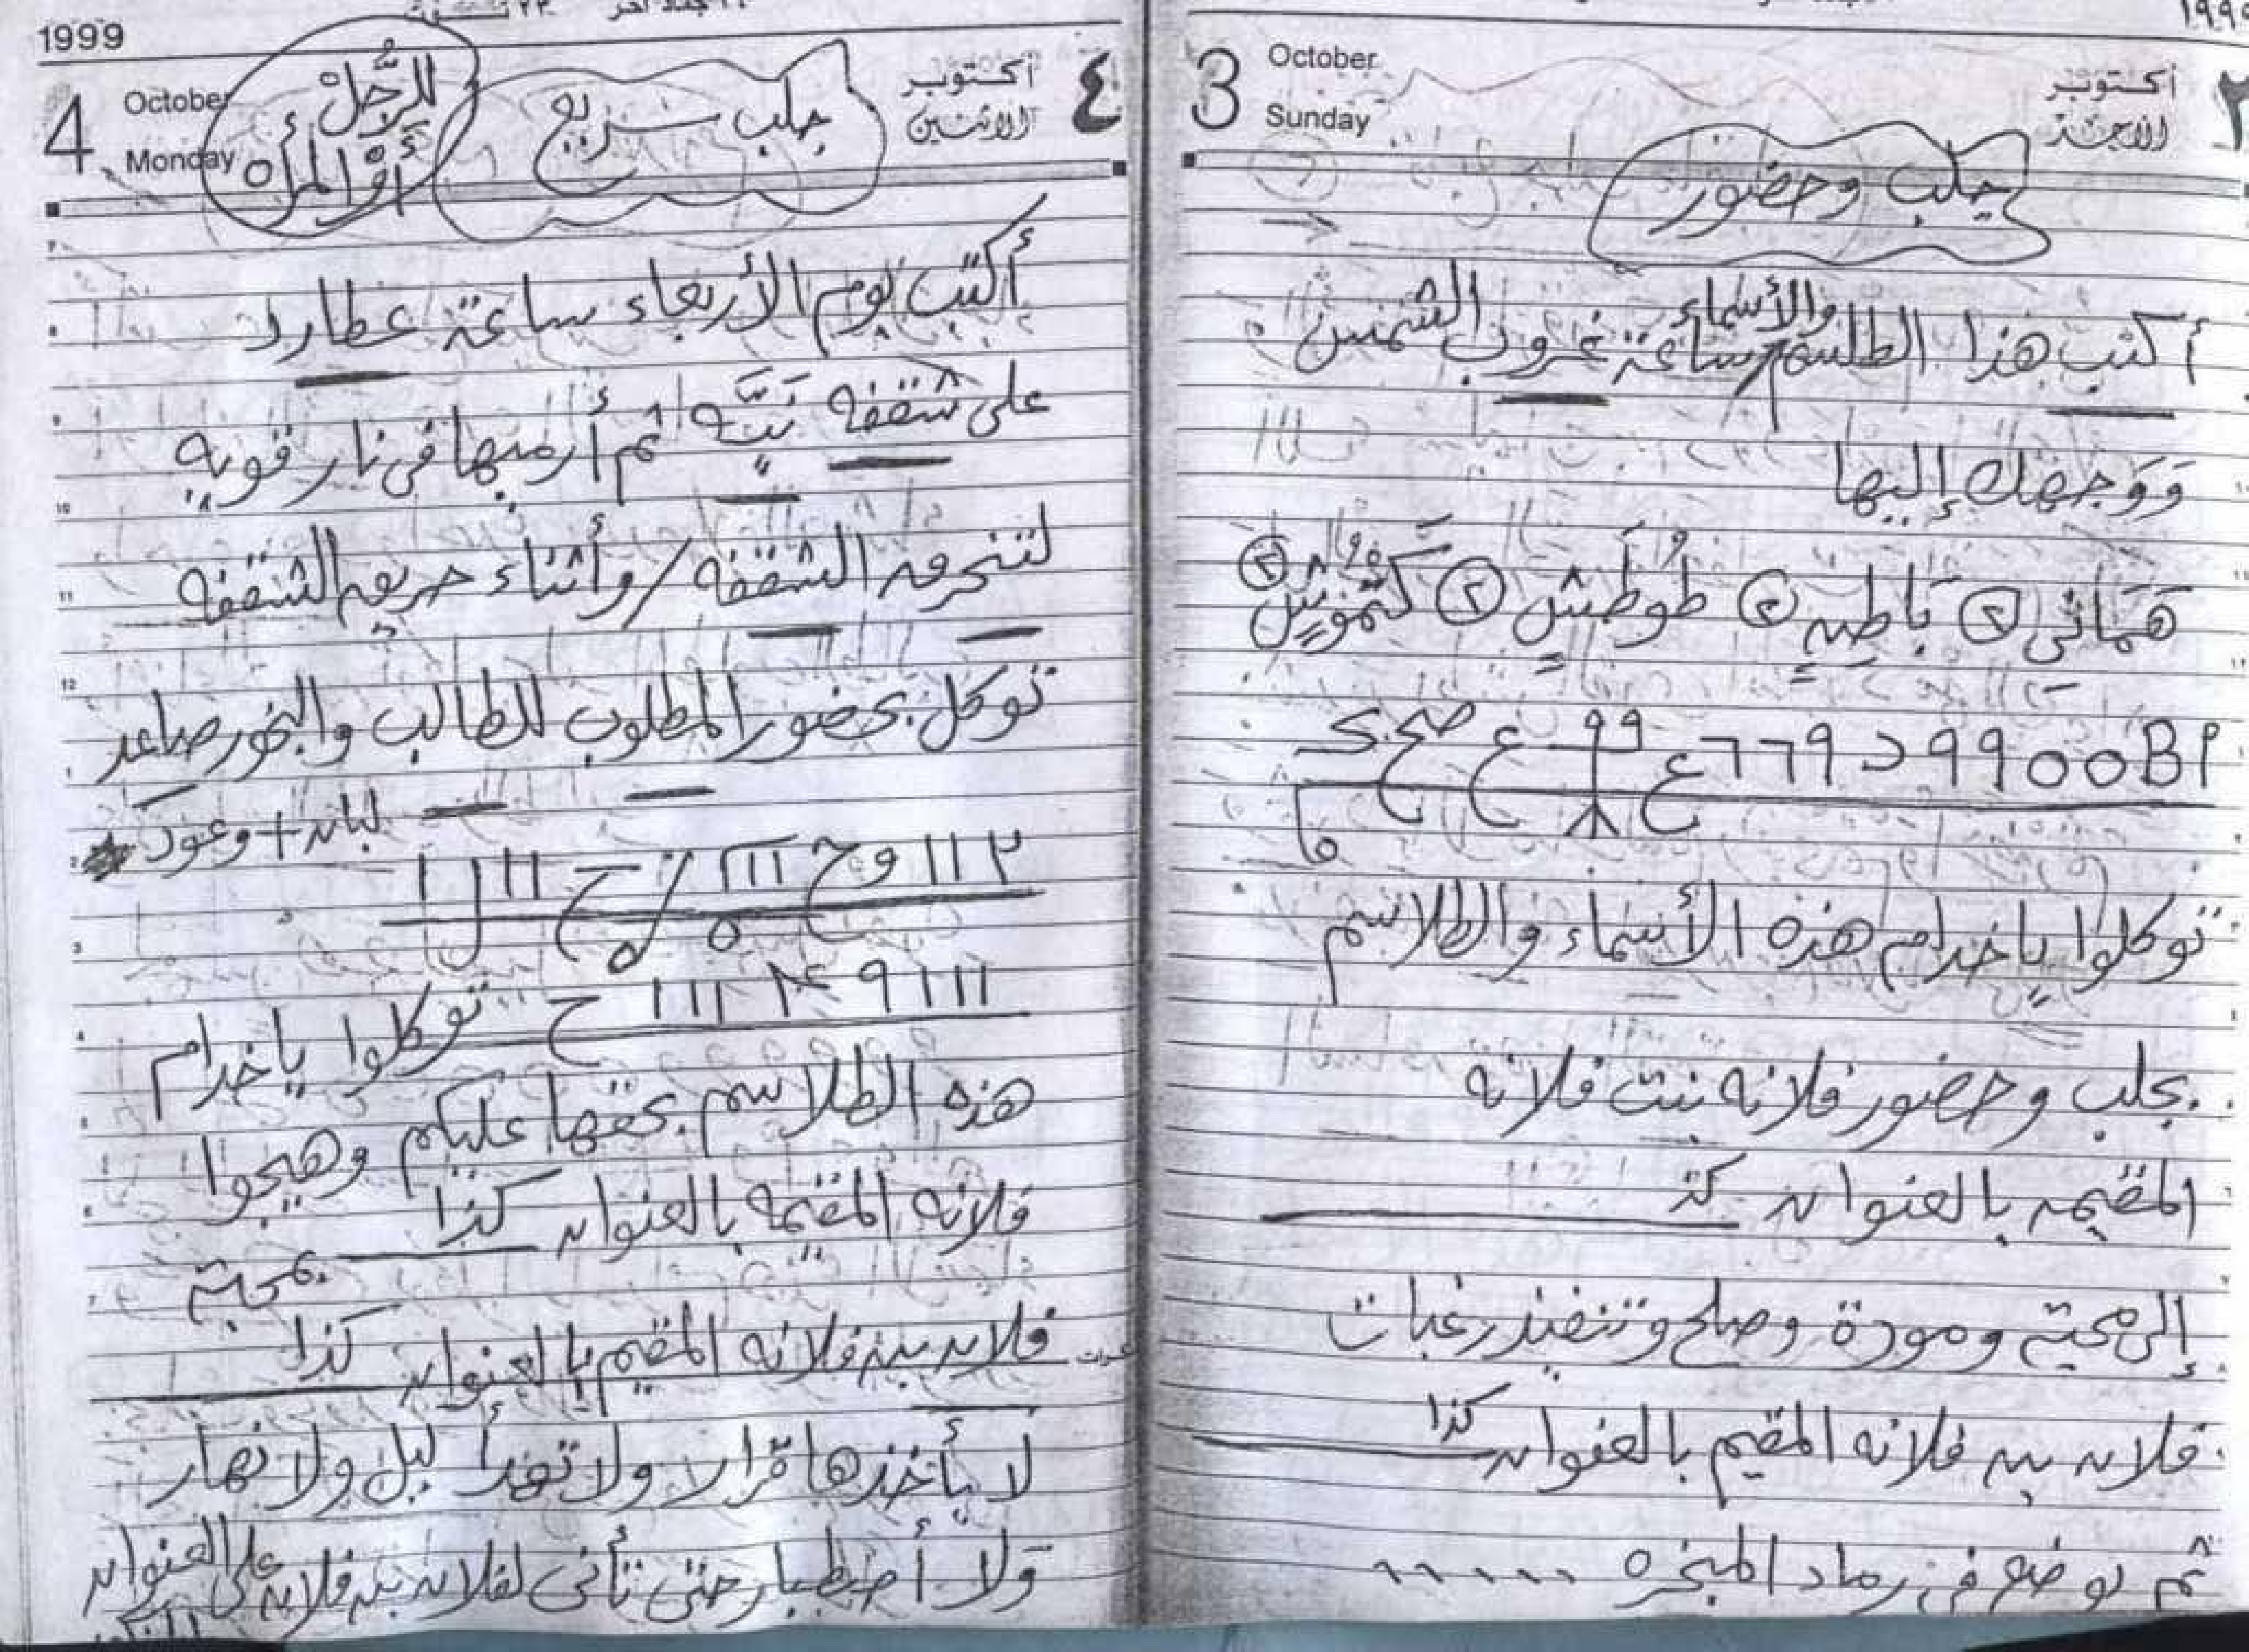 3
October
Sunday
أكتوبر
الأحد
جلب وحضور
أكتب هذا الطلسم والأسماء ساعة غروب الشمس
وَوَجهك إليها
هَمَاني ② بَاطِيهٍ ② طُوطَيشٍ ②
٩٩٥٥BP د ٦٦٩ ع ع صح ح
توكلوا ياخدام هذه الأسماء والطلاسم
بجلب وحضور فلانه بنت فلانه
المقيمه بالعنوان كذ
إلى محبة ومودة وصلح وتنفيذ رغبات
فلان بن فلانه المقيم بالعنوان كذا
ثم توضع في رماد المبخره ......
1999
4
October
Monday
٤
أكتوبر
الاثنين
جلب سريع
للرَّجُلْ
أوْ المرأه
أكتب يوم الأربعاء ساعة عطارد
على شقفه نيَّه ثم أرميها في نار قويه
لتنحرق الشقفه / وأثناء حريق الشقفه
توكل بحضور المطلوب للطالب والبخور صاعد
لبان + وعود
٢١١١ وح ١١١ ح ١١ ل ١
١١١٩ ١١١ ح توكلوا ياخدام
هذه الطلاسم بحقها عليكم وهيجوا
فلانه المقيمه بالعنوان كذا بمحبة
فلان بن فلانه المقيم بالعنوان كذا
لا يأخذها قرار ولا تهدأ ليل ولا نهار
وَلا أصطبار حتى تأتى لفلان بن فلانه على العنوان